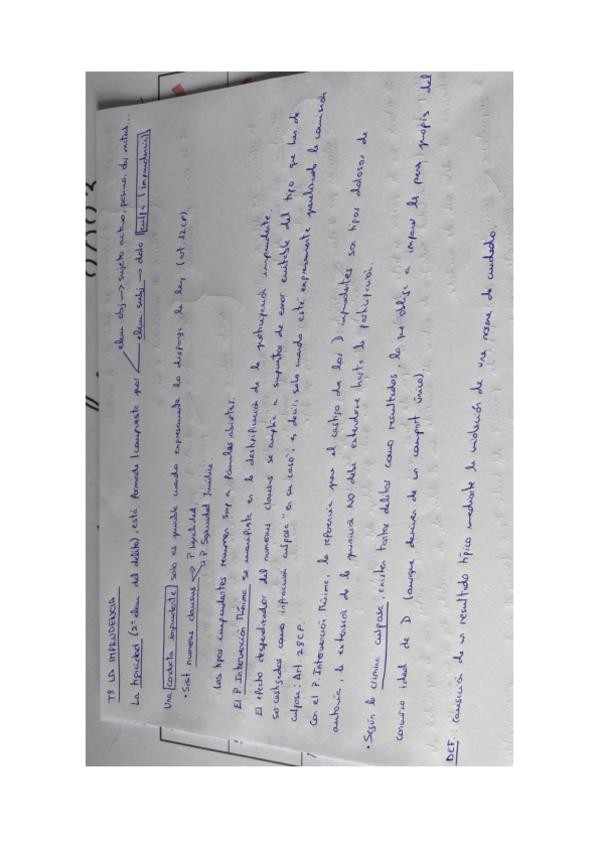 T8 LA IMPRUDENCIA
La tipicidad (2º elem. del delito), está formada / compuesta por
elem obj → sujeto activo, pasivo, obj
elem subj → dolo culpa (imprudencia)
Una conducta imprudente solo es punible cuando expresamente lo disponga la ley (art. 12 CP).
• Sist numerus clausus
P. legalidad.
P. Seguridad Jurídica.
Los tipos imprudentes recurren a fórmulas abiertas.
El P. Intervención Mínima se manifiesta en la destipificación de la participación imprudente.
El efecto despenalizador del numerus clausus se amplía a supuestos de error evitable del tipo que han de
ser castigados como infracción culposa "en su caso", es decir, solo cuando esté expresamente penalizada la comisión
culposa: Art. 28 CP.
Con el P. Intervención Mínima, la referencia para el castigo de los D imprudentes son tipos dolosos de
autoría, la extensión de la punición NO debe extenderse hasta la participación.
• Según la crimina culposa, existen tantos delitos como resultados, lo que obliga a imponer la pena propia del
concurso ideal de D (aunque deriven de un comport único).
DEF: Causación de un resultado típico mediante la violación de una norma de cuidado.